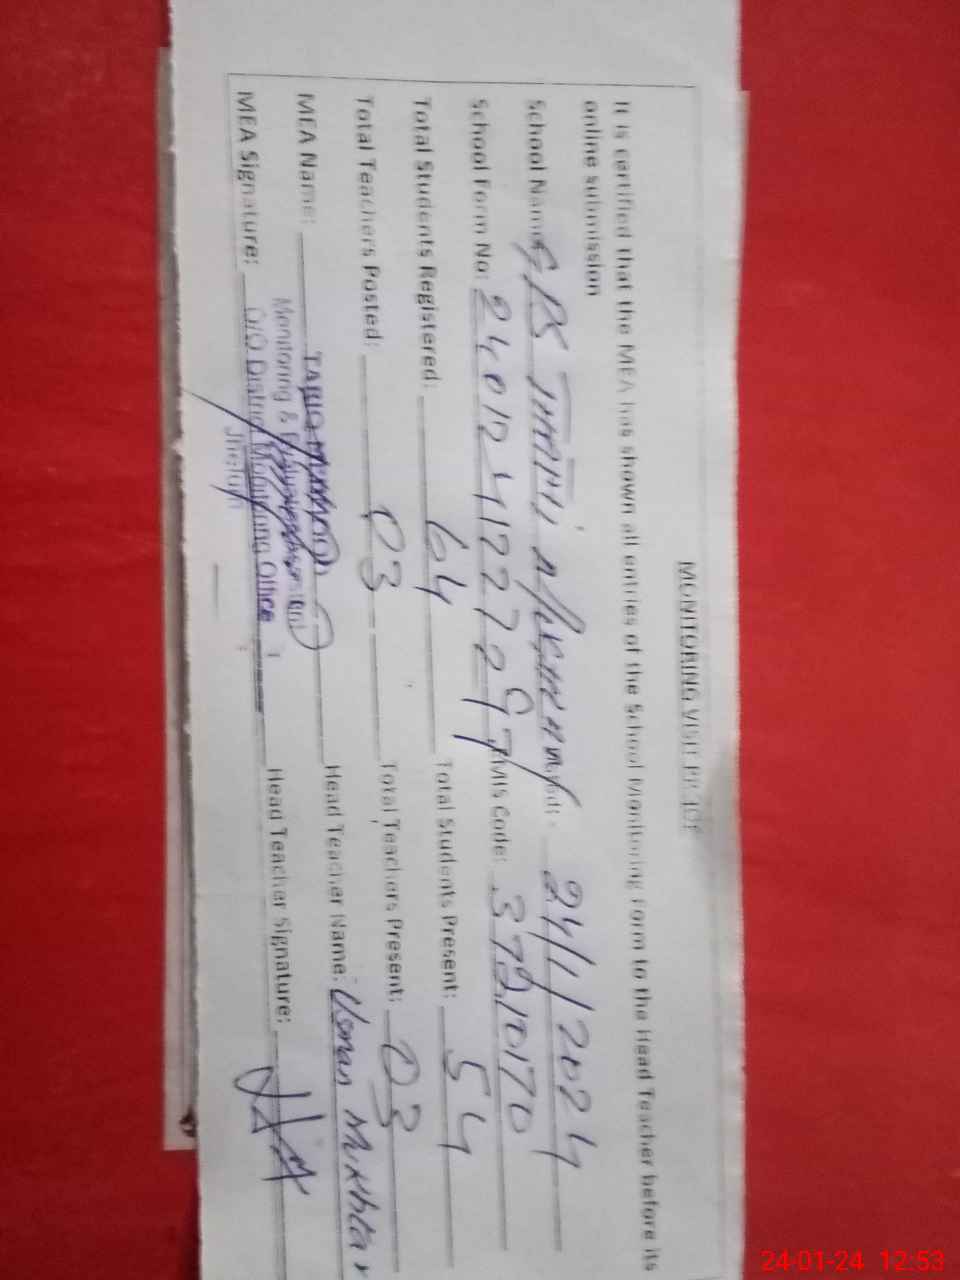 MONITORING VISIT PROOF
It is certified that the MEA has shown all entries of the School Monitoring Form to the Head Teacher before its
online submission
School Name: GPS THATHI 24/1/2024
School Form No: EMIS Code: 37310170
Total Students Registered: 64 Total Students Present: 54
Total Teachers Posted: 03 Total Teachers Present: 03
MEA Name: TARIQ MAHMOOD Head Teacher Name: Usman Mukhtar
Monitoring &
MEA Signature: O/O District Monitoring Office Head Teacher Signature:
Jhelum
24-01-24 12:53